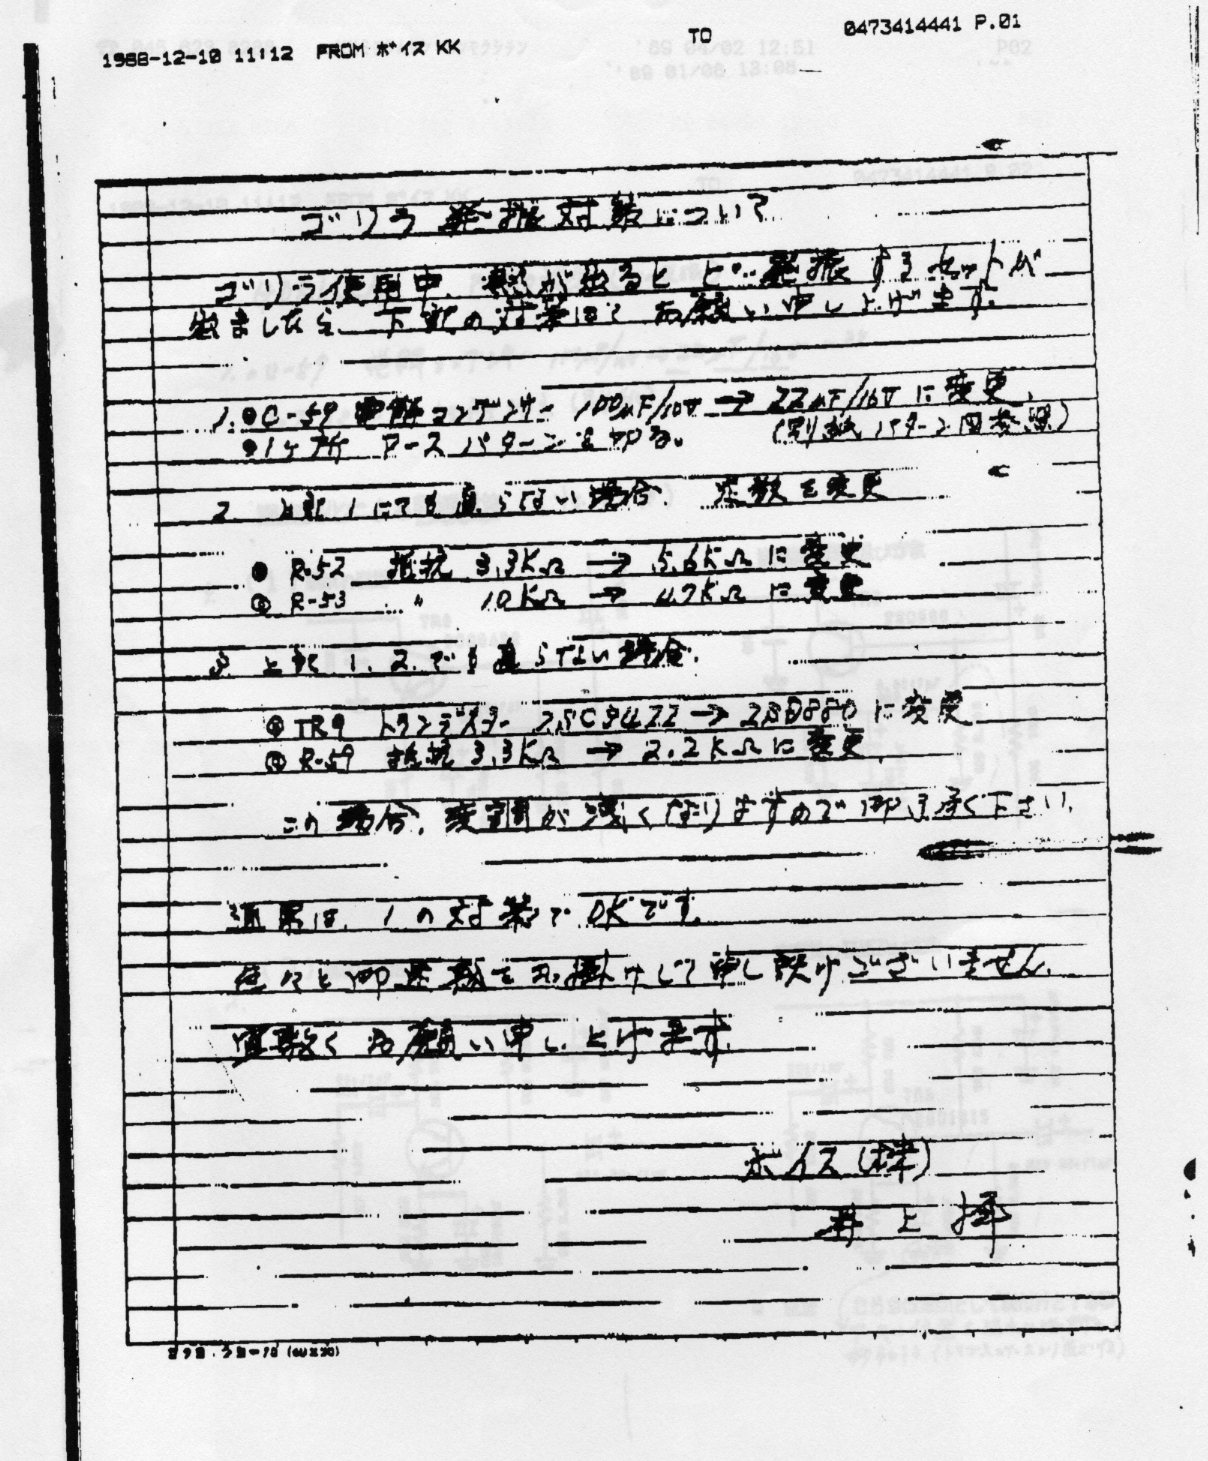 1988-12-10 11:12 FROM ボイス KK TO 0473414441 P.01
ゴリラ 発振対策について
ゴリラ使用中、熱が出ると 発振するセットが
出ましたら、下記の対策にて お願い申し上げます。
1. ●C-59 電解コンデンサー 100μF/10V → 22μF/16V に変更、
●1ヶ所 アースパターンを切る。 (別紙パターン図参照)
2 上記1にても直らない場合、定数を変更
● R-52 抵抗 3.3KΩ → 5.6KΩ に変更
● R-53 〃 10KΩ → 4.7KΩ に変更
3 上記1.2.でも直らない場合、
● TR9 トランジスター 2SC3422 → 2SD880 に変更
● R-59 抵抗 3.3KΩ → 2.2KΩ に変更、
この場合、変調が浅くなりますので御了承く下さい、
通常は、1の対策で OKです。
色々と御迷惑をお掛けして申し訳けございません、
宜敷くお願い申し上げます。
ボイス(株)
井上 拝